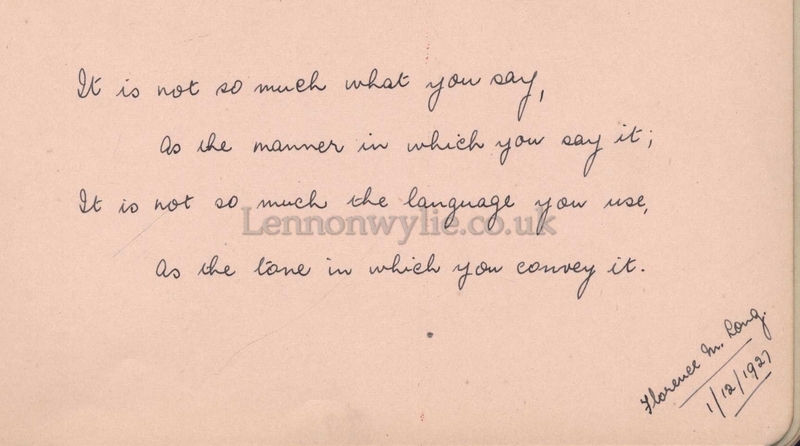 It is not so much what you say,
As the manner in which you say it;
It is not so much the language you use,
Lennonwylie.co.uk
As the tone in which you convey it.
Florence M. Long.
1/12/1927